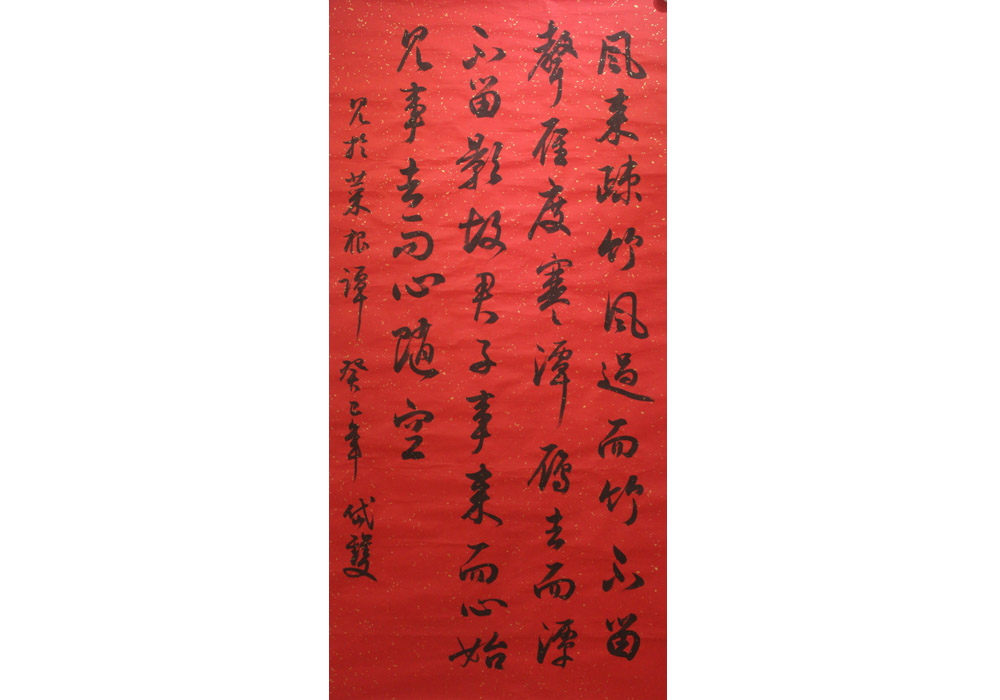 風来疎竹風過而竹不留
聲雁度寒潭鴈去而潭
不留影故君子事来而心始
見事去而心隨空
見於菜根譚 癸巳年